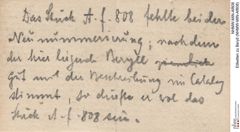 Das Stück A. f. 808 fehlte bei der
Neunummerierung; nachdem
der hier liegende Beryll
gut mit der Beschreibung im Catalog
stimmt, so dürfte er wol das
Stück A. f. 808 sein.